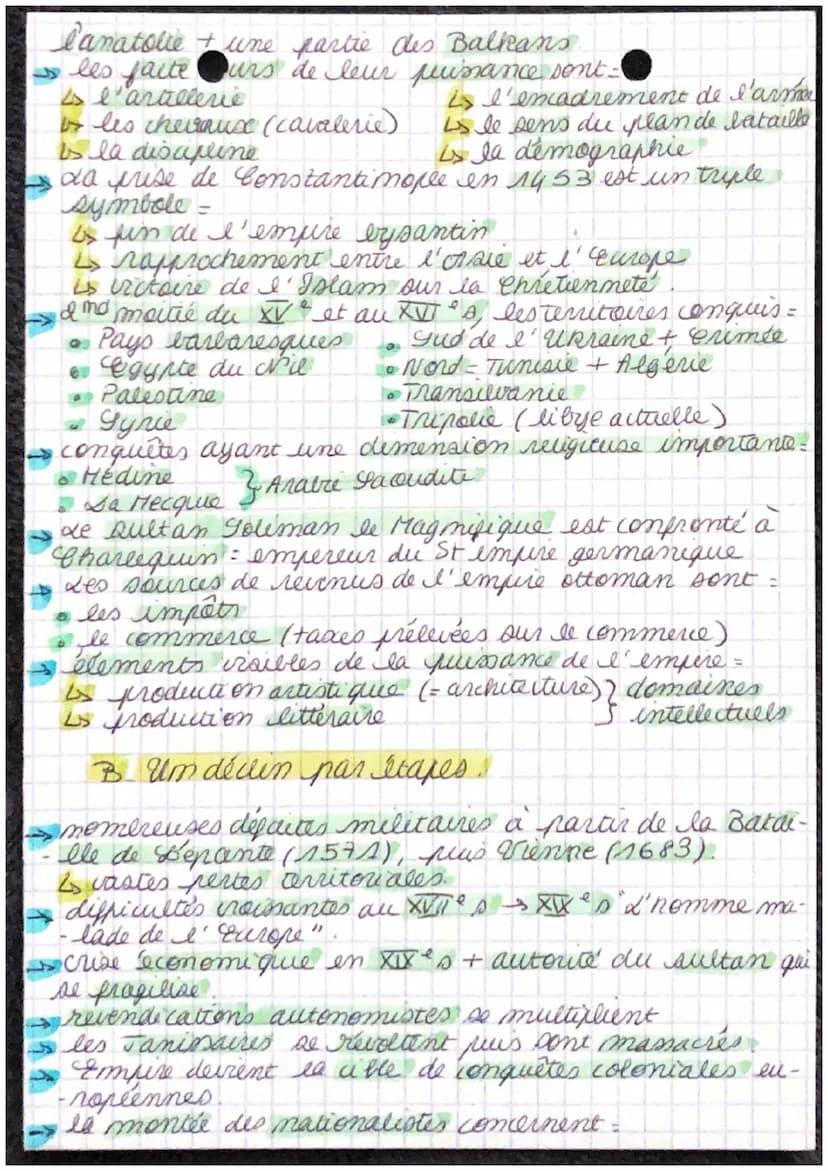 l'anatolie + une partie des Balkans
→ les facteurs de leur puissance sont =
↳ l'artillerie ↳ l'encadrement de l'armée
↳ les chevaux (cavalerie) ↳ le sens du plan de bataille
↳ la discipline ↳ la démographie
→ La prise de Constantinople en 1453 est un triple
symbole =
↳ fin de l'empire bysantin
↳ rapprochement entre l'Asie et l'Europe
↳ victoire de l'Islam sur la Chrétienneté.
→ 2nd moitié du XVe et au XVIe s, les territoires conquis =
• Pays barbaresques • Sud de l'Ukraine + Crimée
• Egypte du Nil • Nord = Tunisie + Algérie
• Palestine • Transilvanie
• Syrie • Tripolie (libye actuelle)
→ conquêtes ayant une dimension religieuse importante =
• Médine
• La Mecque } Arabie Saoudite
→ Le sultan Soliman le Magnifique est confronté à
Charlequin = empereur du St empire germanique
→ Les sources de revenus de l'empire ottoman sont =
• les impôts
• le commerce (taxes prélevées sur le commerce)
→ élements visibles de la puissance de l'empire =
↳ production artistique (= architecture) } domaines
↳ production littéraire } intellectuels
B Un déclin par étapes.
→ nombreuses défaites militaires à partir de la Batai-
-lle de Lépante (1571), puis Vienne (1683).
↳ vastes pertes territoriales.
→ difficultés croissantes au XVIIe s → XIXe s "L'homme ma-
-lade de l'Europe".
→ crise économique en XIXe s + autorité du sultan qui
se fragilise
→ revendications autonomistes se multiplient
→ les Janissaires se révoltent puis sont massacrés.
→ Empire devient la cible de conquêtes coloniales eu-
-ropéennes.
→ la montée des nationalistes concernent =